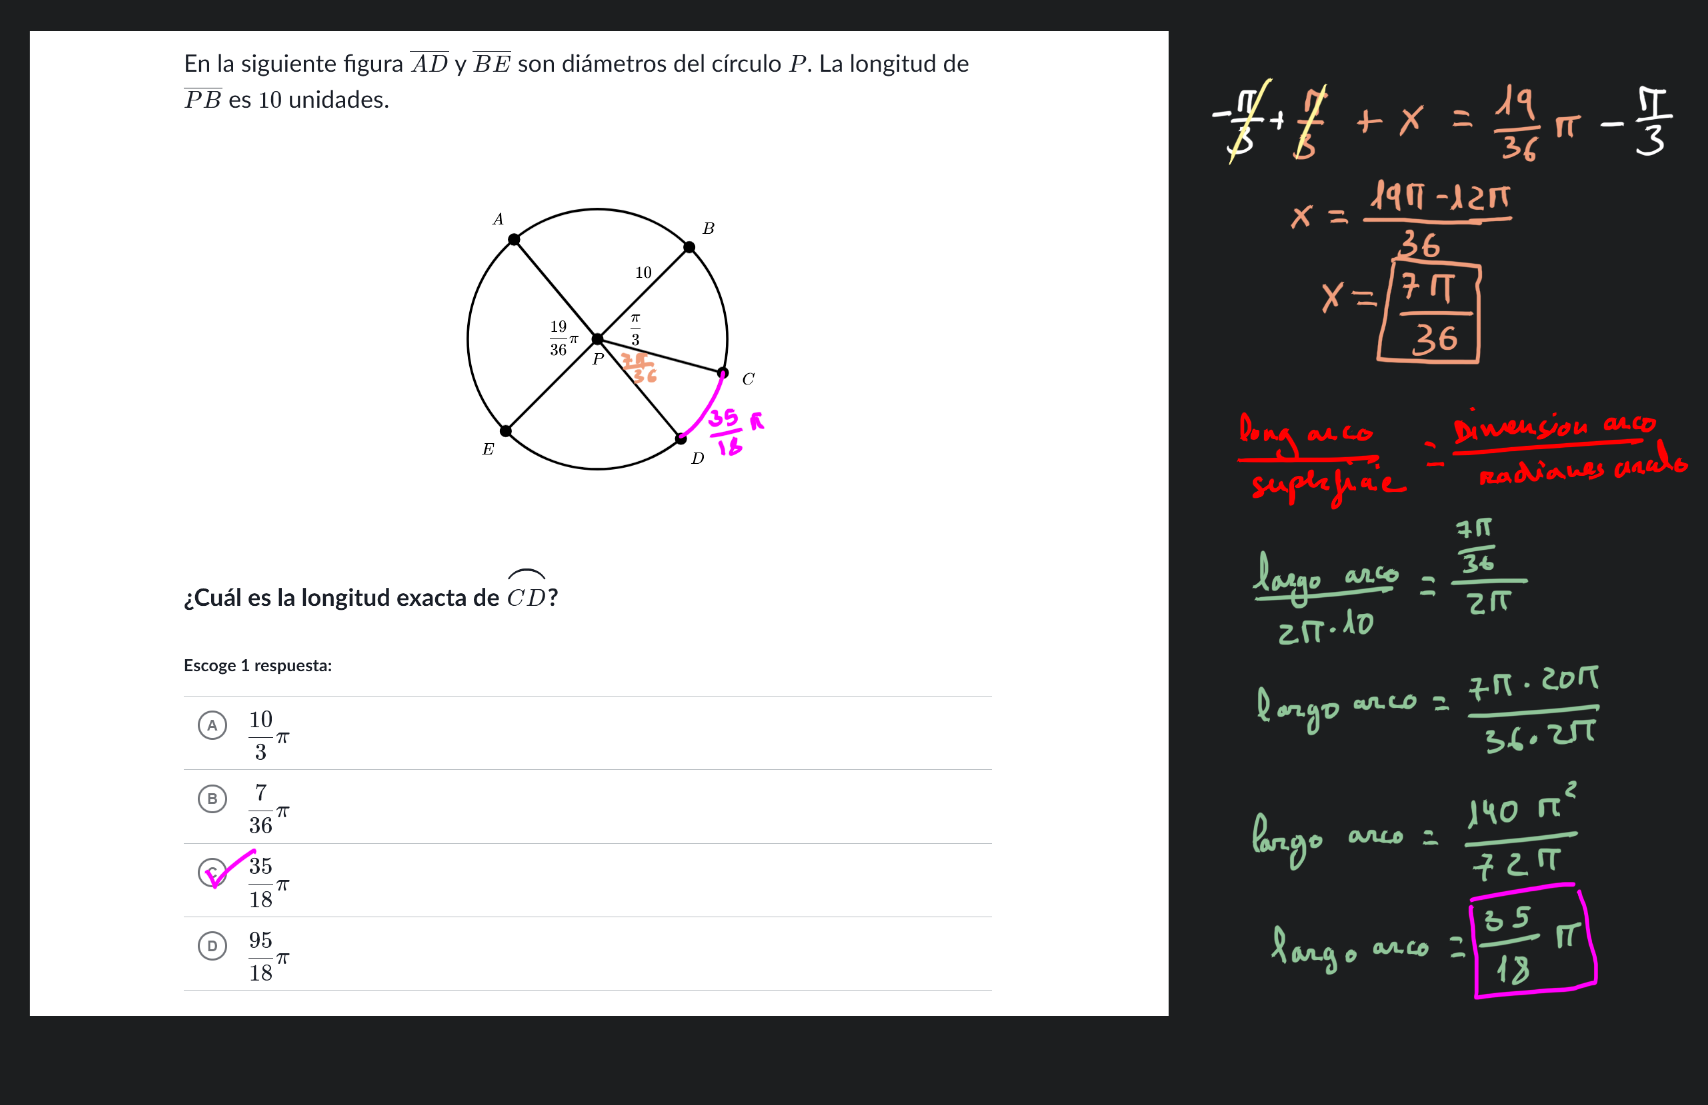 En la siguiente figura AD y BE son diámetros del círculo P. La longitud de
PB es 10 unidades.
A
B
10
19/36 π
π/3
P
7π/36
C
35/18 π
E
D
¿Cuál es la longitud exacta de CD?
Escoge 1 respuesta:
A 10/3 π
B 7/36 π
C 35/18 π
D 95/18 π
-π/3 + π/3 + x = 19/36 π - π/3
x = 19π-12π/36
x = 7π/36
long arco/superficie = Dimension arco/radianes
largo arco/2π·10 = 7π/36/2π
largo arco = 7π·20π/36·2π
largo arco = 140 π²/72π
largo arco = 35/18 π